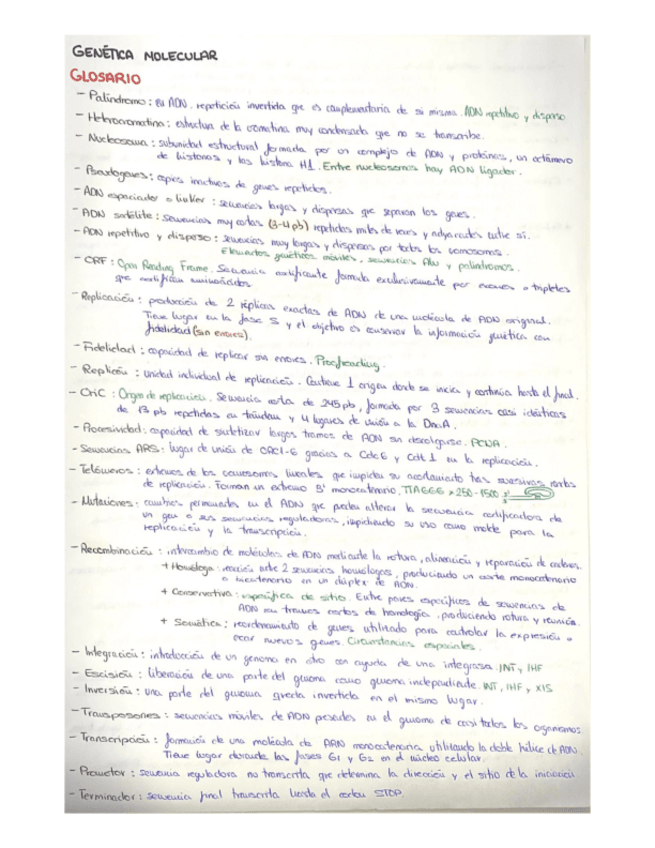 GENÉTICA MOLECULAR
GLOSARIO
- Palíndromo: en ADN. repetición invertida que es complementaria de si misma. ADN repetitivo y disperso
- Heterocromatina: estructura de la cromatina muy condensada que no se transcribe.
- Nucleosoma: subunidad estructural formada por un complejo de ADN y proteínas, un octámero
de histonas y las histona H1. Entre nucleosomas hay ADN ligador.
- Pseudogenes: copias inactivas de genes repetidos.
- ADN espaciador o linker: secuencias largas y dispersas que separan los genes.
- ADN satélite: secuencias muy cortas (3-4 pb) repetidas miles de veces y adyacentes entre sí.
- ADN repetitivo y disperso: secuencias muy largas y dispersas por todos los cromosomas.
Elementos genéticos móviles, secuencias Alu y palíndromos.
- ORF: Open Reading Frame. Secuencia codificante formada exclusivamente por exones o tripletes
que codifican aminoácidos
- Replicación: producción de 2 réplicas exactas de ADN de una molécula de ADN original.
Tiene lugar en la fase S y el objetivo es conservar la información genética con
fidelidad (sin errores).
- Fidelidad: capacidad de replicar sin errores. Proofreading.
- Replicón: unidad individual de replicación. Contiene 1 origen donde se inicia y continúa hasta el final.
- OriC: Origen de replicación. Secuencia corta de 245 pb, formada por 3 secuencias casi idénticas
de 13 pb repetidas en tándem y 4 lugares de unión a la DnaA.
- Procesividad: capacidad de sintetizar largos tramos de ADN sin descolgarse. PCNA.
- Secuencias ARS: lugar de unión de ORC1-6 gracias a Cdc6 y Cdt1 en la replicación.
- Telómeros: extremos de los cromosomas lineales que impiden su acortamiento tras sucesivas rondas
de replicación. Forman un extremo 3' monocatenario. TTAGGG × 250-1500
- Mutaciones: cambios permanentes en el ADN que pueden alterar la secuencia codificadora de
un gen o sus secuencias reguladoras, impidiendo su uso como molde para la
replicación y la transcripción.
- Recombinación: intercambio de moléculas de ADN mediante la rotura, alineación y reparación de cadenas.
+ Homóloga: reacción entre 2 secuencias homólogas, produciendo un corte monocatenario
o bicatenario en un dúplex de ADN.
+ Conservativa: específica de sitio. Entre pares específicos de secuencias de
ADN en tramos cortos de homología, produciendo rotura y reunión.
+ Somática: reordenamiento de genes utilizado para controlar la expresión o
crear nuevos genes. Circunstancias especiales.
- Integración: introducción de un genoma en otro con ayuda de una integrasa. INT, IHF
- Escisión: liberación de una parte del genoma como genoma independiente. INT, IHF y XIS
- Inversión: una parte del genoma queda invertida en el mismo lugar.
- Transposones: secuencias móviles de ADN presentes en el genoma de casi todos los organismos.
- Transcripción: formación de una molécula de ARN monocatenaria utilizando la doble hélice de ADN.
Tiene lugar durante las fases G1 y G2 en el núcleo celular.
- Promotor: secuencia reguladora no transcrita que determina la dirección y el sitio de la iniciación
- Terminador: secuencia final transcrita hasta el codón STOP.